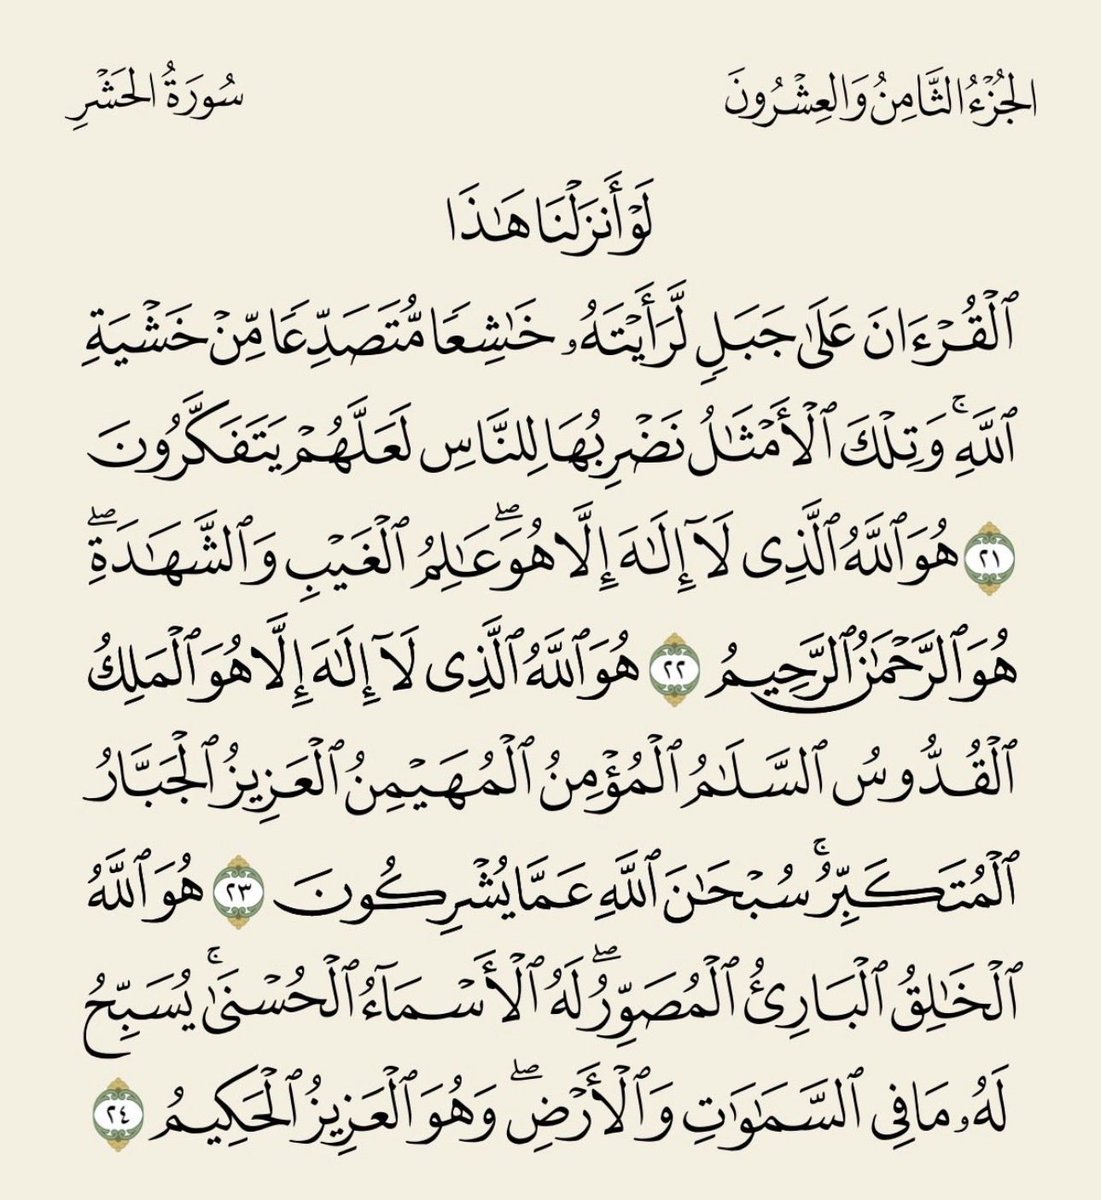 الجُزْءُ الثَّامِنُ وَالعِشْرُونَ سُورَةُ الحَشْرِ
لَوْ أَنزَلْنَا هَـٰذَا
ٱلْقُرْءَانَ عَلَىٰ جَبَلٍ لَّرَأَيْتَهُۥ خَـٰشِعًا مُّتَصَدِّعًا مِّنْ خَشْيَةِ
ٱللَّهِ ۚ وَتِلْكَ ٱلْأَمْثَـٰلُ نَضْرِبُهَا لِلنَّاسِ لَعَلَّهُمْ يَتَفَكَّرُونَ
٢١ هُوَ ٱللَّهُ ٱلَّذِى لَآ إِلَـٰهَ إِلَّا هُوَ ۖ عَـٰلِمُ ٱلْغَيْبِ وَٱلشَّهَـٰدَةِ ۖ
هُوَ ٱلرَّحْمَـٰنُ ٱلرَّحِيمُ ٢٢ هُوَ ٱللَّهُ ٱلَّذِى لَآ إِلَـٰهَ إِلَّا هُوَ ٱلْمَلِكُ
ٱلْقُدُّوسُ ٱلسَّلَـٰمُ ٱلْمُؤْمِنُ ٱلْمُهَيْمِنُ ٱلْعَزِيزُ ٱلْجَبَّارُ
ٱلْمُتَكَبِّرُ ۚ سُبْحَـٰنَ ٱللَّهِ عَمَّا يُشْرِكُونَ ٢٣ هُوَ ٱللَّهُ
ٱلْخَـٰلِقُ ٱلْبَارِئُ ٱلْمُصَوِّرُ ۖ لَهُ ٱلْأَسْمَآءُ ٱلْحُسْنَىٰ ۚ يُسَبِّحُ
لَهُۥ مَا فِى ٱلسَّمَـٰوَٰتِ وَٱلْأَرْضِ ۖ وَهُوَ ٱلْعَزِيزُ ٱلْحَكِيمُ ٢٤